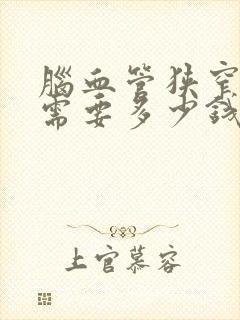 腦血管狹窄
需要多少錢
上官慕容